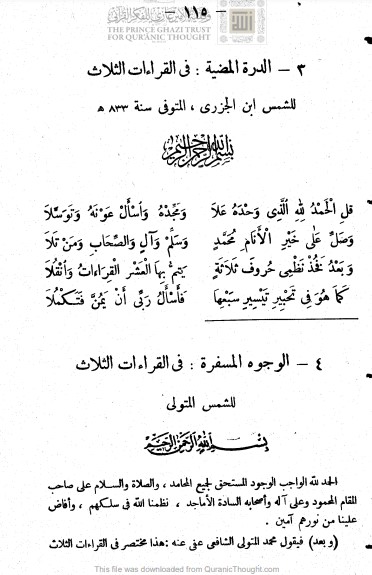 — ١١٥ —
THE PRINCE GHAZI TRUST
FOR QURĀNIC THOUGHT
٣ – الدرة المضية : فى القراءات الثلاث
للشمس ابن الجزرى ، المتوفى سنة ٨٣٣ ھ
بسم الله الرحمن الرحيم
قُلِ الْحَمْدُ لِلهِ الَّذِى وَحْدَهُ عَلَا وَمَجِّدْهُ وَاسْأَلْ عَوْنَهُ وَتَوَسَّلَا
وَصَلِّ عَلَى خَيْرِ الْأَنَامِ مُحَمَّدٍ وَسَلِّمْ وَآلٍ وَالصِّحَابِ وَمَنْ تَلَا
وَبَعْدُ فَخُذْ نَظْمِى حُرُوفَ ثَلَاثَةٍ يَتِمُّ بِهَا الْعَشْرُ الْقِرَاءَاتُ وَانْقُلَا
كَمَا هُوَ فِى تَحْبِيرِ تَيْسِيرِ سَبْعِهَا فَأَسْأَلُ رَبِّى أَنْ يَمُنَّ فَتَكْمُلَا
٤ – الوجوه المسفرة : فى القراءات الثلاث
للشمس المتولى
بسم الله الرحمن الرحيم
الحمد لله الواجب الوجود المستحق لجميع المحامد ، والصلاة والسلام على صاحب
المقام المحمود وعلى آله وأصحابه السادة الأماجد ، نظمنا الله فى سلكهم ، وأفاض
علينا من نورهم آمين .
(وبعد) فيقول محمد المتولى الشافعى عفى عنه : هذا مختصر فى القراءات الثلاث
This file was downloaded from QuranicThought.com